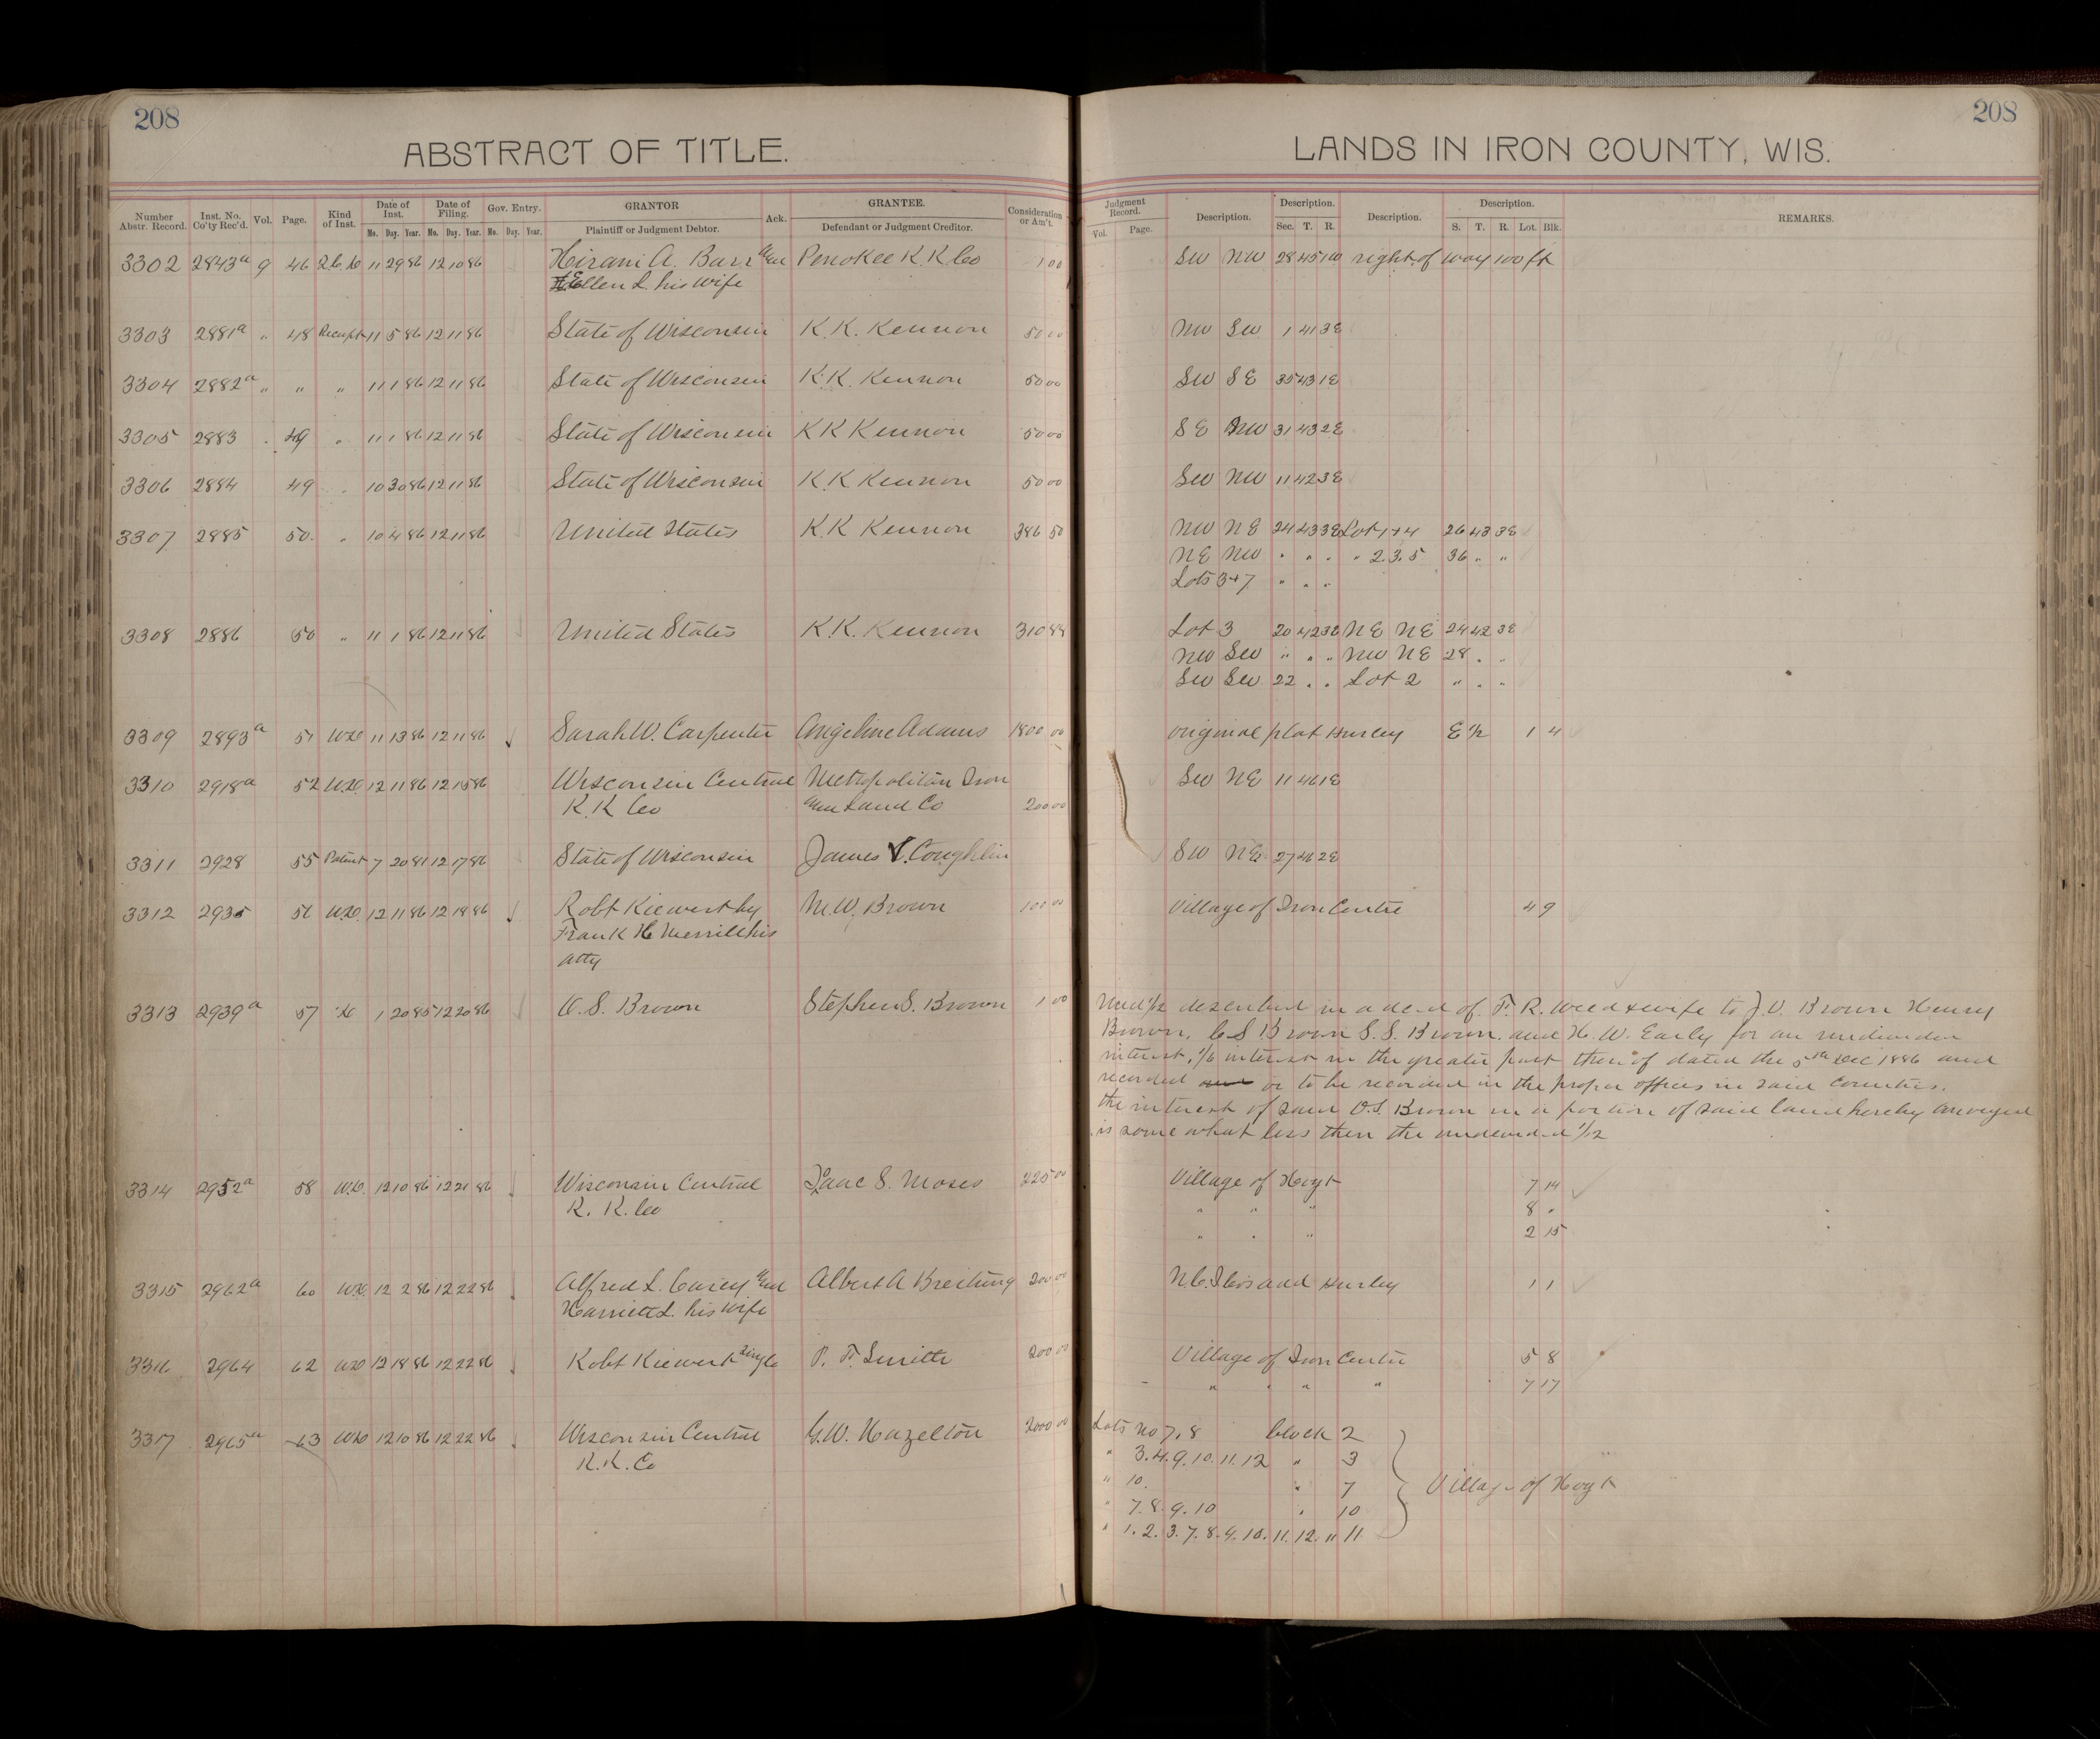 208
208
ABSTRACT OF TITLE.
LANDS IN IRON COUNTY, WIS.
Number Abstr. Record. Inst. No. Co'ty Rec'd. Vol. Page. Kind of Inst. Date of Inst. Date of Filing. Gov. Entry. GRANTOR Ack. GRANTEE. Consideration or Am't. Judgment Record. Description. Description. Description. Description. REMARKS.
Mo. Day. Year. Mo. Day. Year. Mo. Day. Year. Plaintiff or Judgment Debtor. Defendant or Judgment Creditor. Vol. Page. Sec. T. R. S. T. R. Lot. Blk.
3302 2843a 9 46 Q.C.D 11 29 86 12 10 86 Hiram A. Barr and Penokee R R Co 1 00 SW NW 28 45 1E right of way 100 ft
Ellen L. his wife
3303 2881a " 48 Receipt 11 5 86 12 11 86 State of Wisconsin K. K. Kennon 50 00 NW SW 1 41 3E
3304 2882a " " " 11 1 86 12 11 86 State of Wisconsin K.K. Kennon 50 00 SW SE 35 43 1E
3305 2883 . 49 " 11 1 86 12 11 86 State of Wisconsin K K Kennon 50 00 SE NW 31 43 2E
3306 2884 49 . 10 30 86 12 11 86 State of Wisconsin K.K. Kennon 50 00 SW NW 11 42 3E
3307 2885 50. " 10 4 86 12 11 86 United States K.K Kennon 386 50 NW NE 24 43 3E Lot 1+4 26 43 3E
NE NW " " " " 2.3.5 36 " "
Lots 3+7 " " "
3308 2886 50 " 11 1 86 12 11 86 United States K.K. Kennon 310 44 Lot 3 20 42 3E NE NE 24 42 3E
NW SW " " " NW NE 28 " "
SW SW 22 " " Lot 2 " " "
3309 2893a 51 W.D 11 13 86 12 11 86 Sarah W. Carpenter Angeline Adams 1800 00 original plat Hurley E 1/2 1 4
3310 2918a 52 W.D. 12 11 86 12 15 86 Wisconsin Central Metropolitan Iron SW NE 11 46 1E
R. R Co and Land Co 200 00
3311 2928 55 Patent 7 20 81 12 17 86 State of Wisconsin James S. Coughlin SW NE 27 46 2E
3312 2935 56 W.D. 12 11 86 12 18 86 Robt Kiewert by M.W. Brown 100 00 Village of Iron Centre 4 9
Frank H Merrill his
atty
3313 2939a 57 D 1 20 85 12 20 86 O. S. Brown Stephen S. Brown 1 00 Und 1/2 described in a deed of F. R. Weed & wife to J.V. Brown Henry
Brown, C S Brown S.S. Brown and H.W. Early for an undivided
interest, 1/6 interest in the greater part thereof dated the 5th Dec 1886 and
recorded or to be recorded in the proper offices in said Counties.
the interest of said O.S. Brown in a portion of said land hereby conveyed
is some what less then the undivided 1/12
3314 2952a 58 W.D. 12 10 86 12 21 86 Wisconsin Central Isaac S. Moses 225 00 Village of Hoyt 7 14
R. R. Co " " " 8 "
" " " 2 15
3315 2962a 60 W.D. 12 2 86 12 22 86 Alfred L. Carey and Albert A Breitung 200 00 Hurley 1 1
Harriett L. his wife
3316 2964 62 W.D 12 18 86 12 22 86 Robt Kiewert single P. F. Smith 200 00 Village of Iron Centre 5 8
" " " " 7 17
3317 2965a 63 W.D 12 10 86 12 22 86 Wisconsin Central G.W. Hazelton 2000 00 Lots No 7, 8 block 2
R.R. Co " 3.4.9.10.11.12 " 3
" 10. " 7 Village of Hoyt
" 7.8.9.10 " 10
" 1.2.3.7.8.9.10.11.12. " 11.